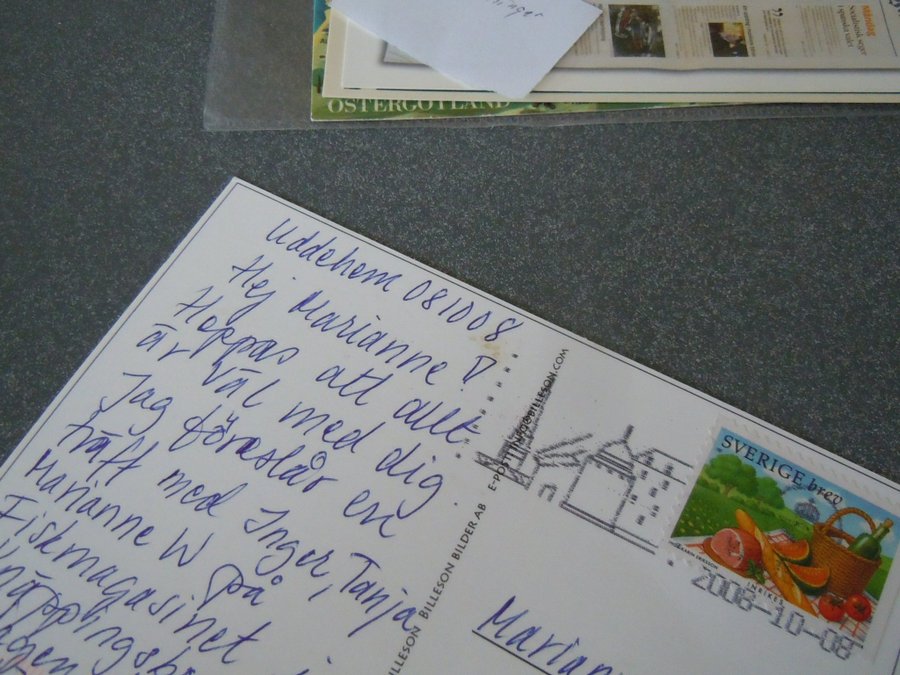 ÖSTERGÖTLAND
Måndag
Socialistisk seger
i spanska valet
Uddehem 081008
Hej Marianne D
Hoppas att allt
är väl med dig.
Jag föreslår en
träff med Inger, Tanja
Marianne W på
Fiskmagasinet i
E-POST: INFO@BILLESON.COM
BILLESON BILDER AB
SVERIGE brev
INRIKES
2008-10-08
Marian